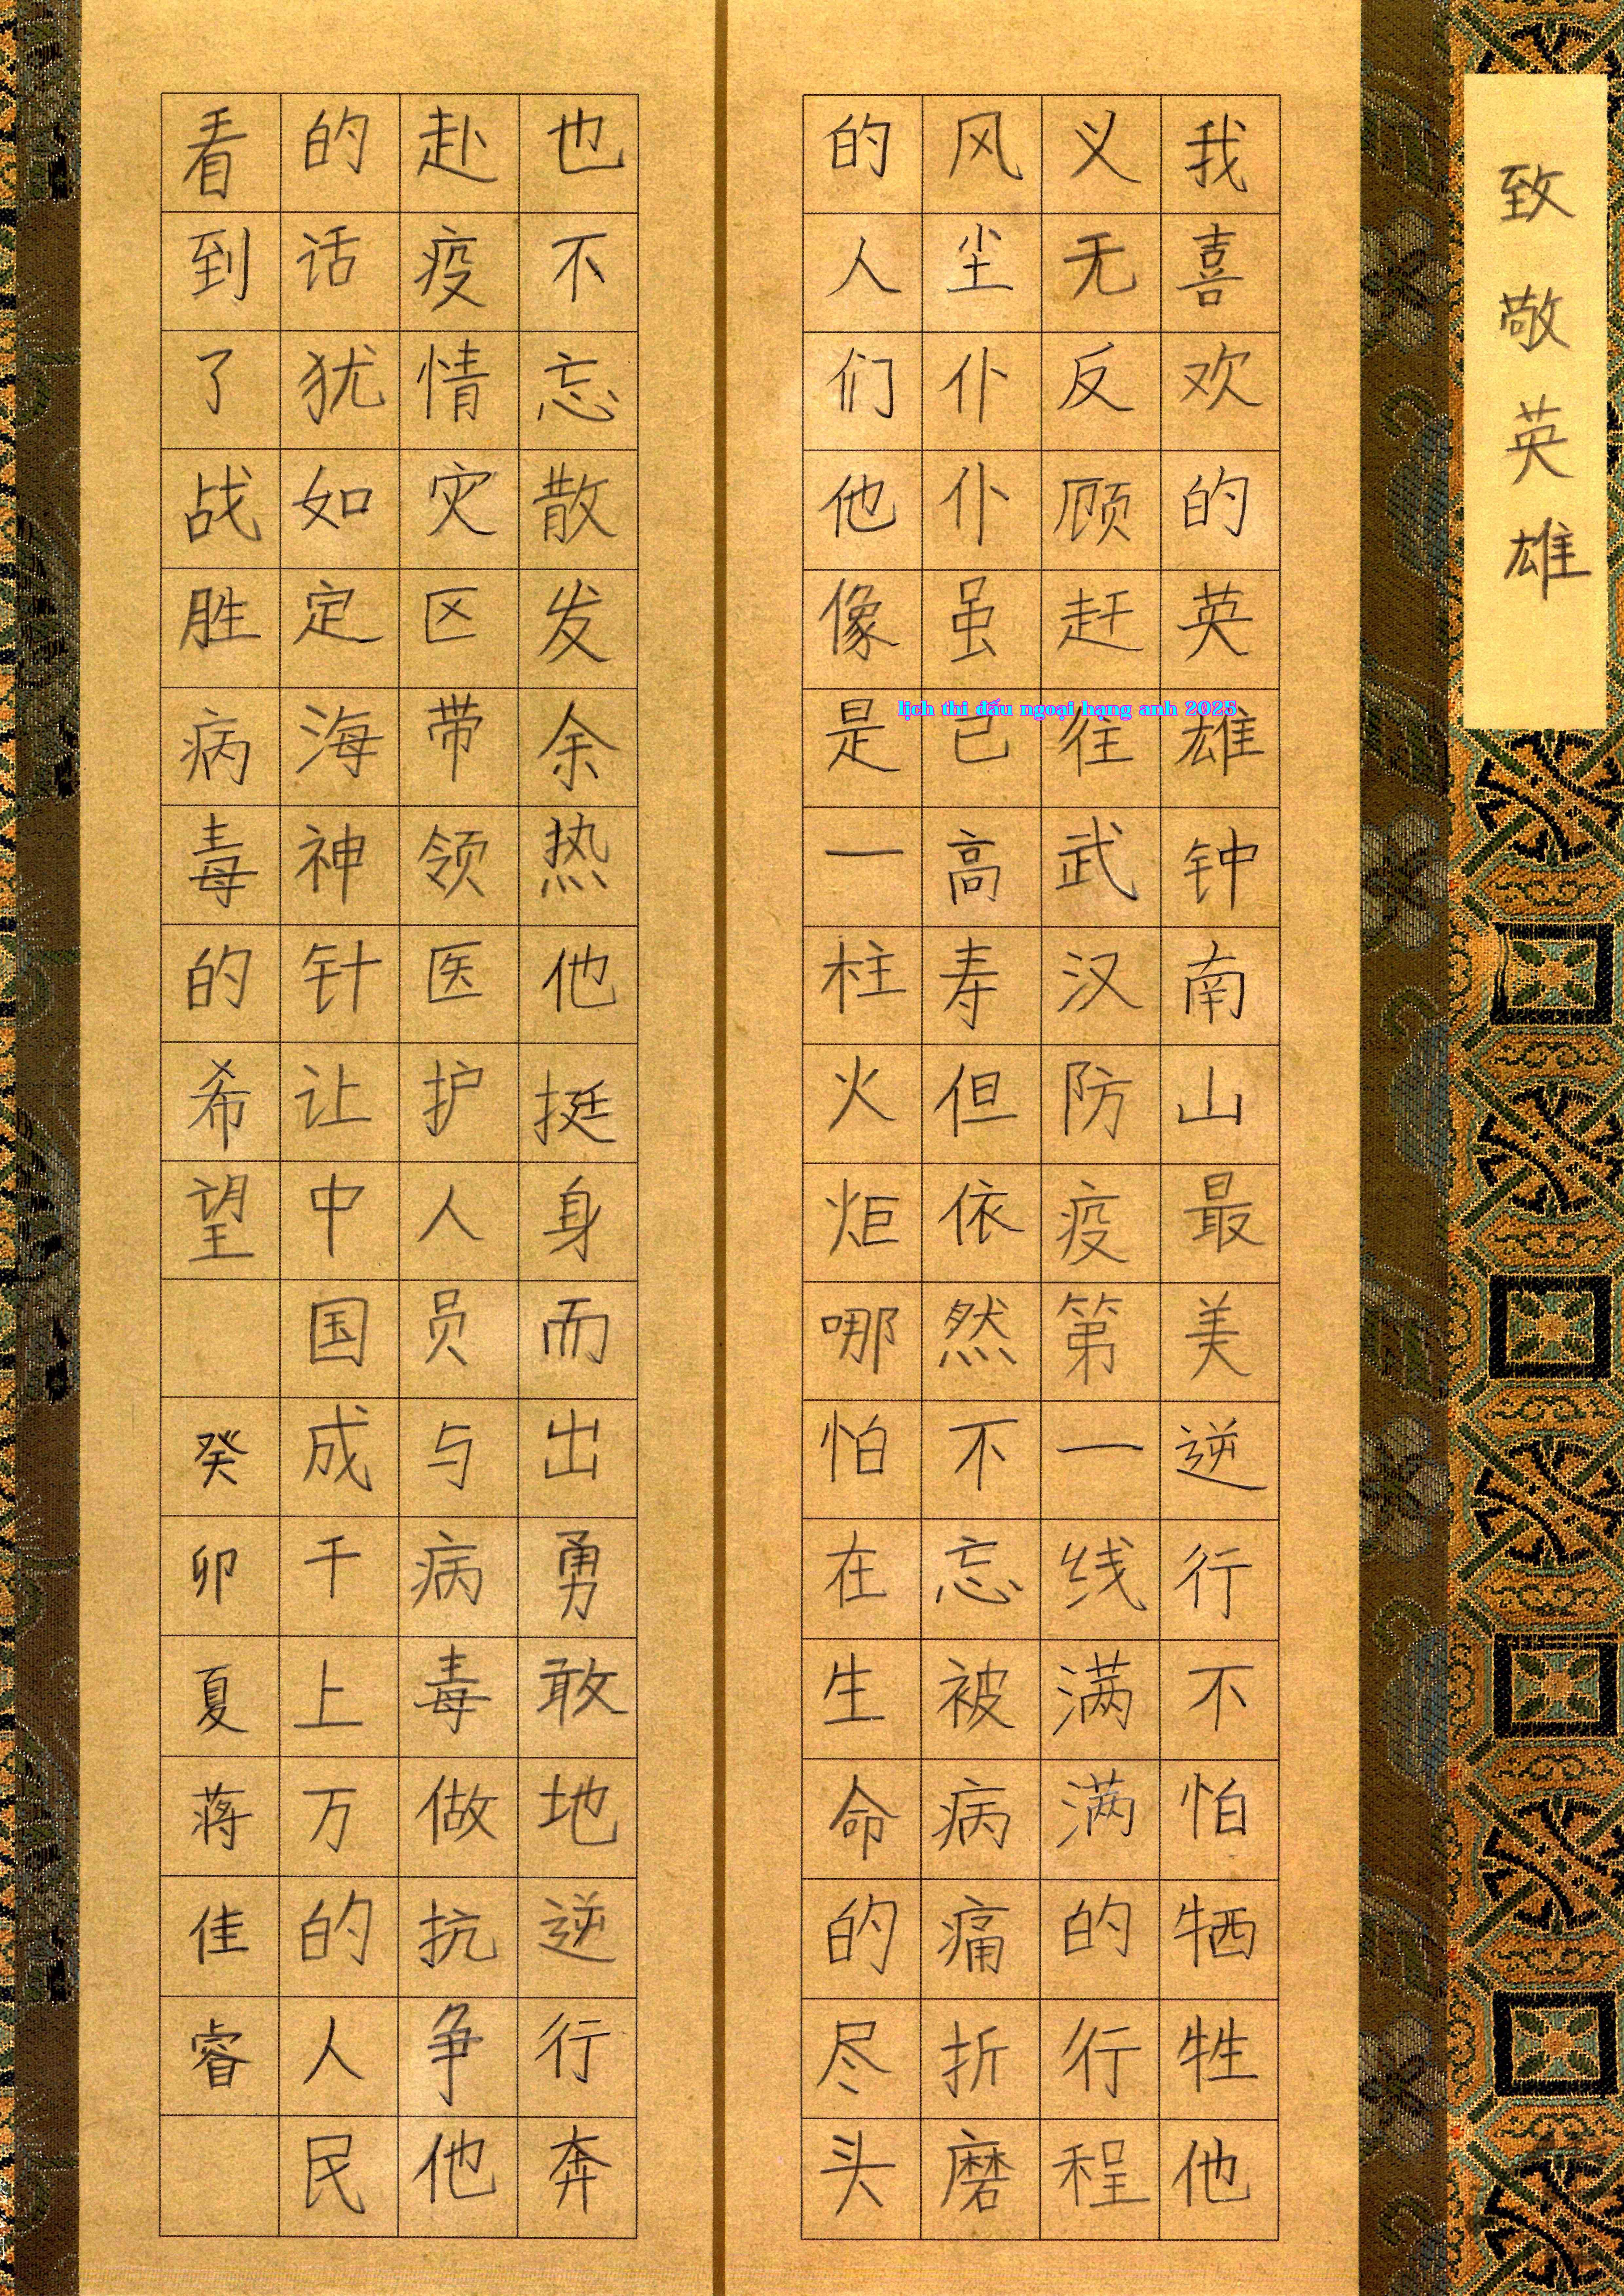 致敬英雄
我喜欢的英雄钟南山最美逆行不怕牺牲他
义无反顾赶往武汉防疫第一线满满的行程
风尘仆仆虽已高寿但依然不忘被病痛折磨
的人们他像是一柱火炬哪怕在生命的尽头
也不忘散发余热他挺身而出勇敢地逆行奔
赴疫情灾区带领医护人员与病毒做抗争他
的话犹如定海神针让中国成千上万的人民
看到了战胜病毒的希望 癸卯夏蒋佳睿
lịch thi đấu ngoại hạng anh 2025